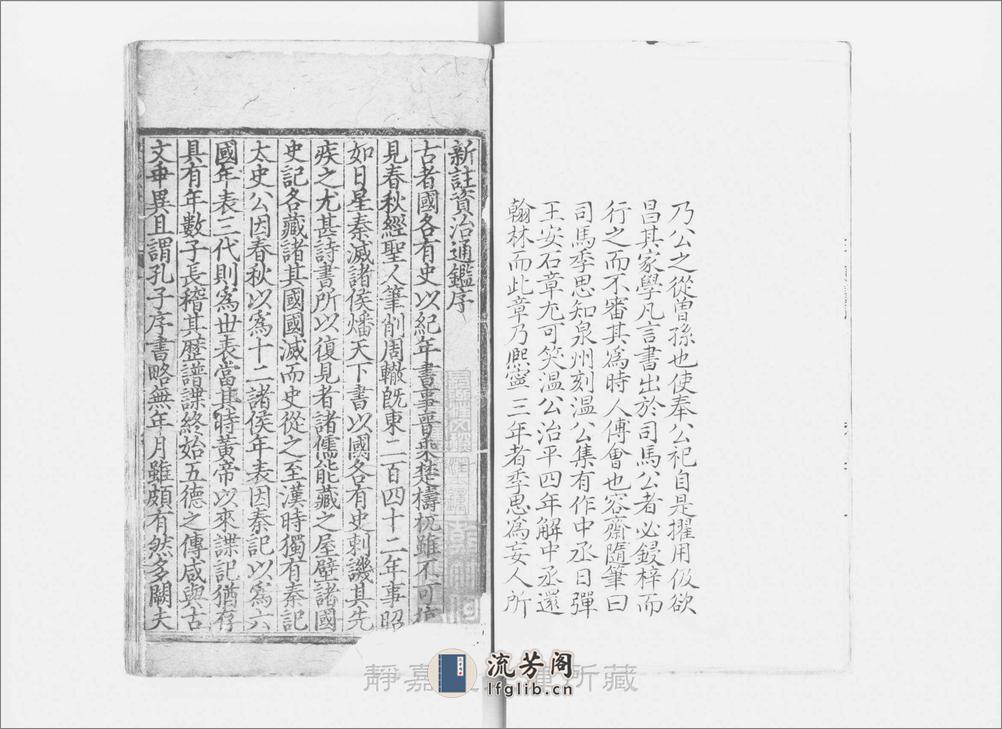 乃公之從曾孫也使奉公祀自是擢用伋欲
昌其家學凡言書出於司馬公者必鋟梓而
行之而不審其爲時人傅會也容齋隨筆曰
司馬季思知泉州刻溫公集有作中丞日彈
王安石章尤可笑溫公治平四年解中丞還
翰林而此章乃熙寧三年者季思爲妄人所
新註資治通鑑序
古者國各有史以紀年書事晉乘楚檮杌雖不可
見春秋經聖人筆削周轍旣東二百四十二年事昭
如日星秦滅諸侯燔天下書以國各有史刺譏其先
疾之尤甚詩書所以復見者諸儒能藏之屋壁諸國
史記各藏諸其國國滅而史從之至漢時獨有秦記
太史公因春秋以爲十二諸侯年表因秦記以爲六
國年表三代則爲世表當其時黃帝以來諜記猶存
具有年數子長稽其歷譜諜終始五德之傳咸與古
文乖異且謂孔子序書略無年月雖頗有然多闕夫
靜嘉 所藏
流芳阁
lfglib.cn